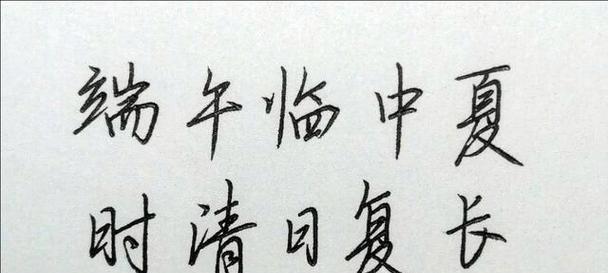 端午临中夏
时清日复长